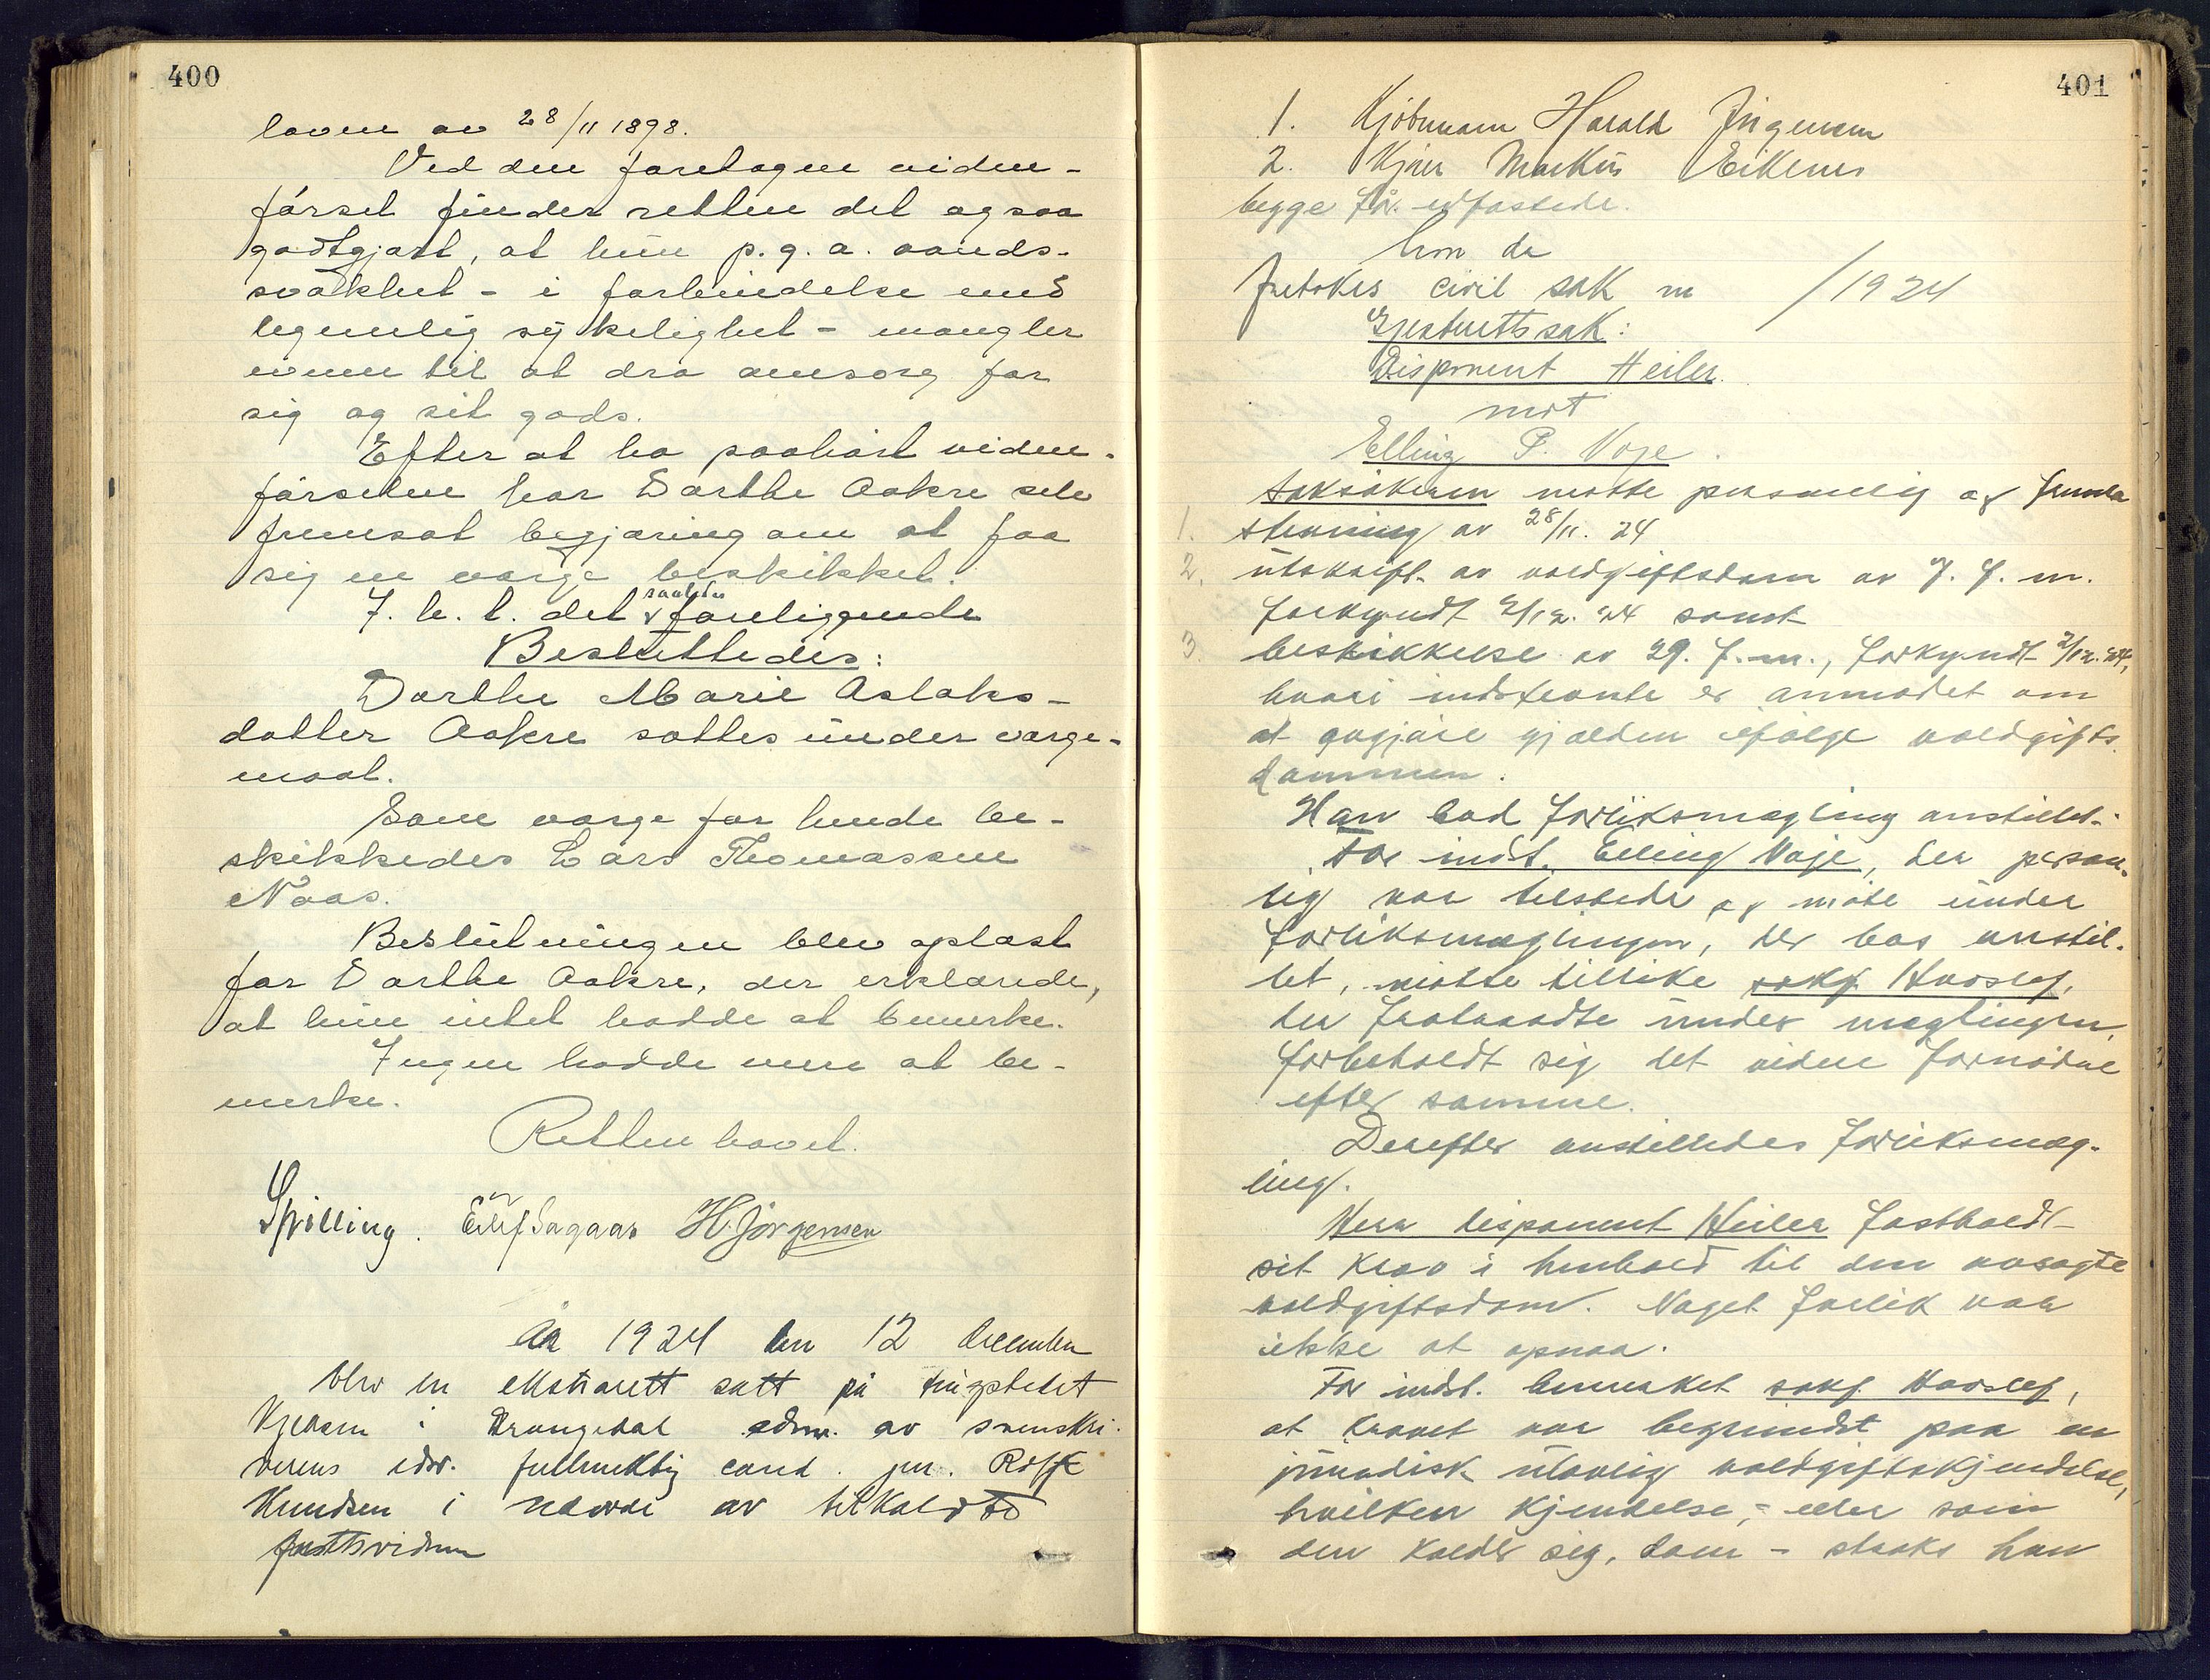 400
loven av 28/11 1898.
Ved den foretagne viden-
førsel finder retten det ogsaa
godtgjort, at hun p.g.a. aands-
svakhet - i forbindelse med
legemlig sykelighet - mangler
evnen til at dra omsorg for
sig og sit gods.
Efter at ha paahørt viden-
førselen har Dorthe Aakre selv
fremsat begjæring om at faa
sig en verge beskikket.
I. h. t. det saaledes foreliggende
Besluttedes:
Dorthe Marie Aslaks-
datter Aakre sættes under verge-
maal.
Som verge for hende be-
skikkedes Lars Thomassen
Naas.
Beslutningen blev oplæst
for Dorthe Aakre, der erklærede,
at hun intet hadde at bemerke.
Ingen hadde mere at be-
merke.
Retten hævet.
Spilling. Eilef Sagaas H. Jørgensen
År 1924 den 12 december
blev en ekstrarett satt på tingstedet
i Drangedal adm. av sorenskri-
verens edsv. fullmektig cand. jur. Rolf
Knudsen i nærvær av tilkaldte
rettsvidner
401
1. Kjøbmann Harald Jørgensen
2. Markus Eikenes
begge før edfæstede.
Hvor da
Foretokes civil sak nr /1924
Gjesterettssak:
Disponent Heiler
mot
Elling P. Voje.
Saksøkeren møtte personlig og fremla
1. stevning av 28/11. 24
2. utskrift av voldgiftsdom av f. m.
forkyndt 2/12. 24 samt
3. beskikkelse av 29. f. m., forkyndt 2/12. 24,
hvori indstevnte er anmodet om
at avgjøre gjælden ifølge voldgifts-
dommen.
Han bad forliksmægling anstillet.
For indst. Elling Voje, der person-
lig var tilstede og møtte under
forliksmæglingen, der bes anstil-
let, møtte tillike sakf. Haaslef,
der fratraadte under mæglingen,
forbeholdt sig det videre fornødne
efter samme.
Derefter anstilledes forliksmæg-
ling.
Herr disponent Heiler fastholdt
sit krav i henhold til den avsagte
voldgiftsdom. Noget forlik var
ikke at opnaa.
For indst. bemerket sakf. Haaslef,
at kravet var begrundet paa en
juridisk utavlig voldgiftskjendelse,
hvilken kjendelse, - eller som
den kalder sig, dom - straks han